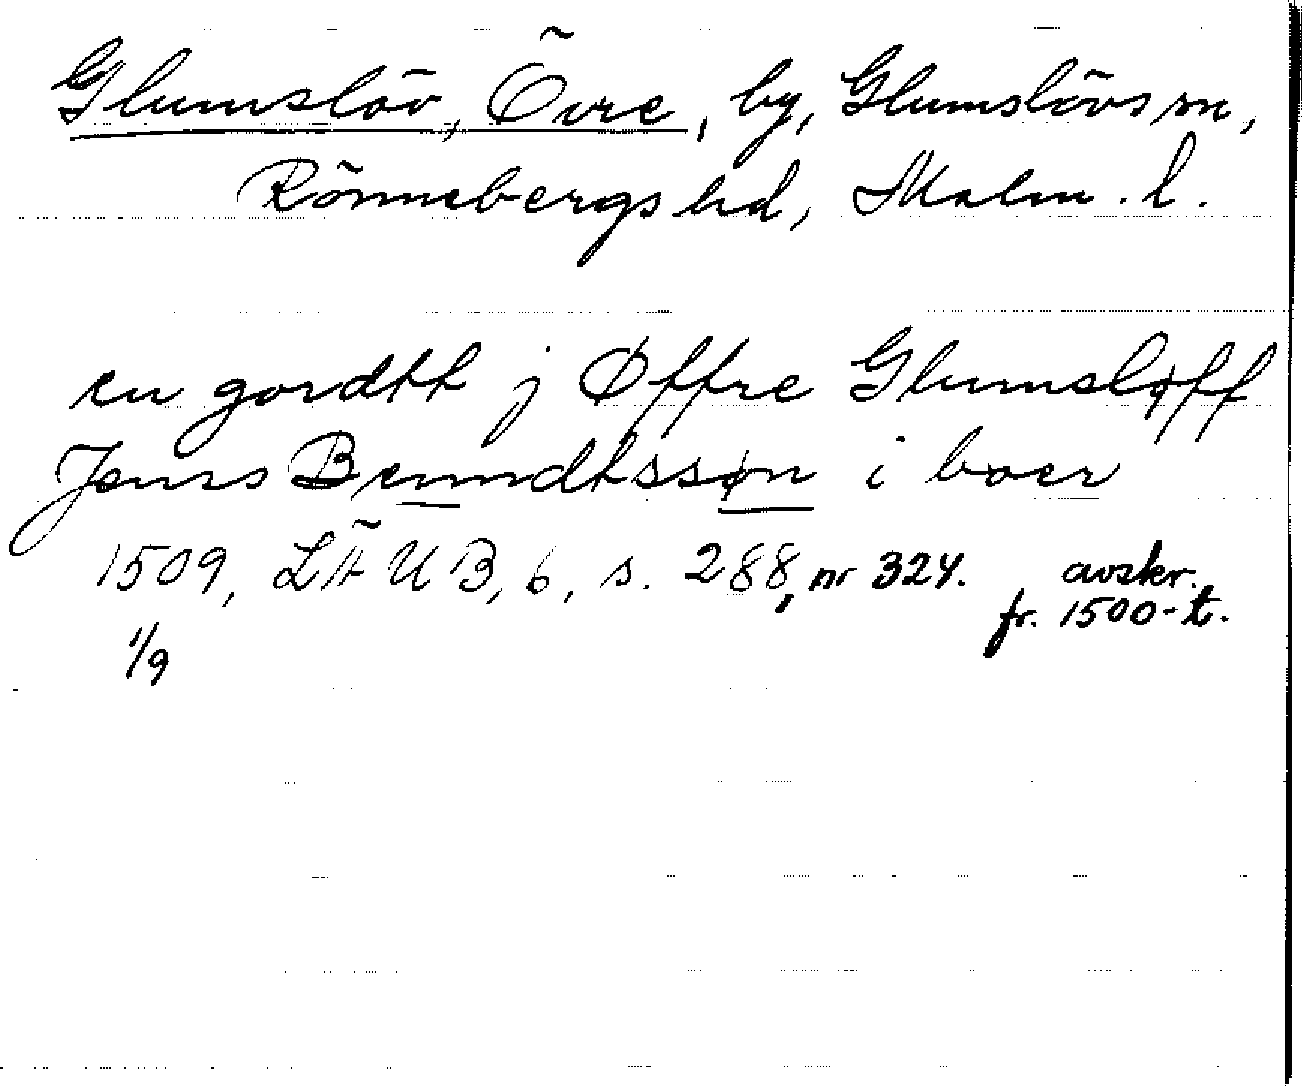 Glumslöv, Övre, by, Glumslövs sn,
Rönnebergs hd, Malm. l.
en gordtt j Øffre Glumsløff
Jenss Benndtssøn i boer
1509, LÄUB, 6, s. 288, nr 324. avskr.
fr. 1500-t.
1/9